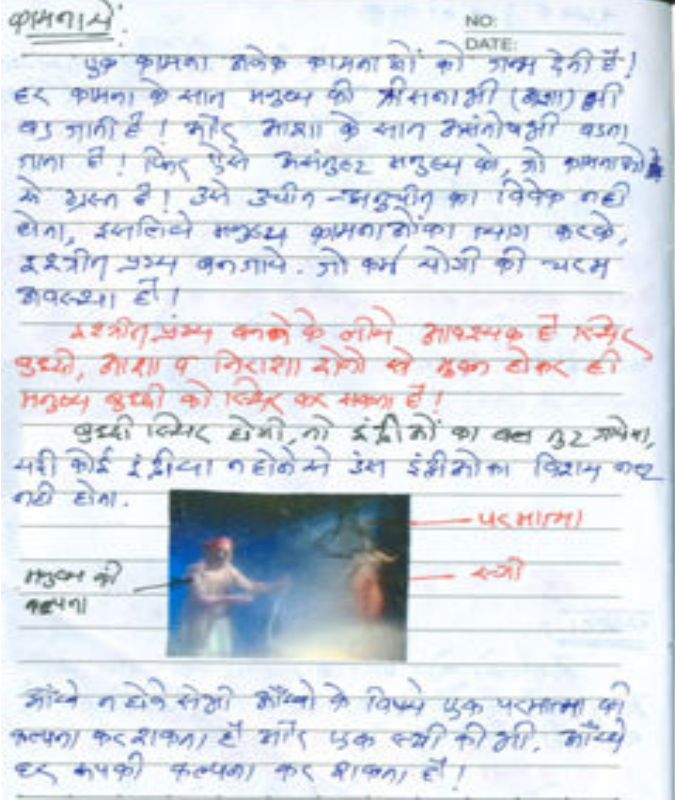 कामनाये:
NO:
DATE:
एक कामना अनेक कामनाओं को जन्म देती है!
हर कामना के सात मनुष्य की भी (आशा) भी
बड जाती है! और आशा के सात असंतोषभी बडता
जाता है! फिर ऐसे असंतुष्ट मनुष्य को, जो कामनाओं
से ग्रस्त है! उसे उचीत-अनुचीत का विवेक नही
होता, इसलिये मनुष्य कामनाओंका त्याग करके,
बनजाये. जो कर्म योगी की चरम
अवस्था है!
बनने के लीये आवश्यक है स्थिर
बुध्दी, आशा व निराशा दोनो से मुक्त होकर ही
मनुष्य बुध्दी को स्थिर कर सकता है!
बुध्दी स्थिर होगी, तो इंद्रीयों का बल तुट जायेगा,
यदी कोई इंद्रीया न होनेसे उस इंद्रीयोका विशय नष्ट
नही होता.
परमात्मा
स्त्री
मनुष्य की
कल्पना
आँख्ये न होने सेभी आँख्यो के विषये एक परमात्मा की
कल्पना कर शकता है और एक स्त्री की भी, आँख्ये
हर रूपकी कल्पना कर शकता है!